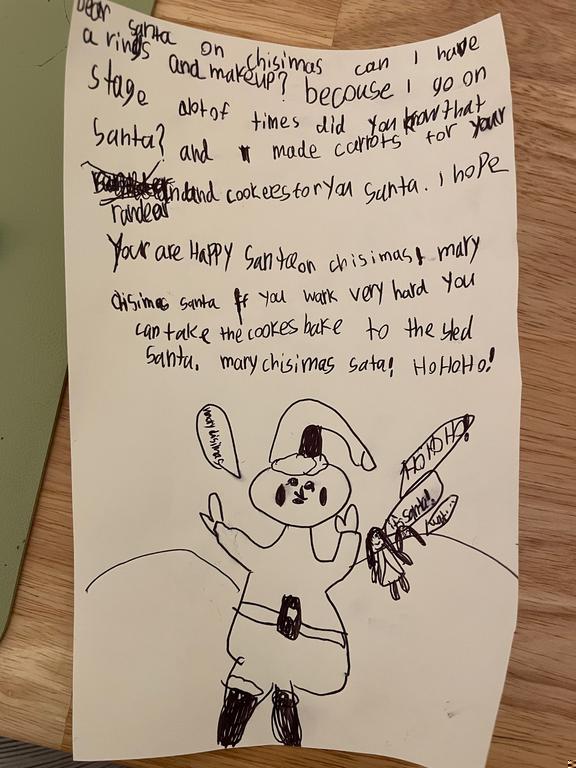 Dear santa on chisimas can i have
a rings and makeup? becouse I go on
stage alot of times did you know that
Santa? and I made carrots for your
randear and cookees for you Santa. I hope
Your are Happy Santa on chisimas! mary
chisimas santa If you wark very hard you
can take the cookes bake to the sled
Santa. mary chisimas sata! HoHoHo!
HO HO HO!
Santa!